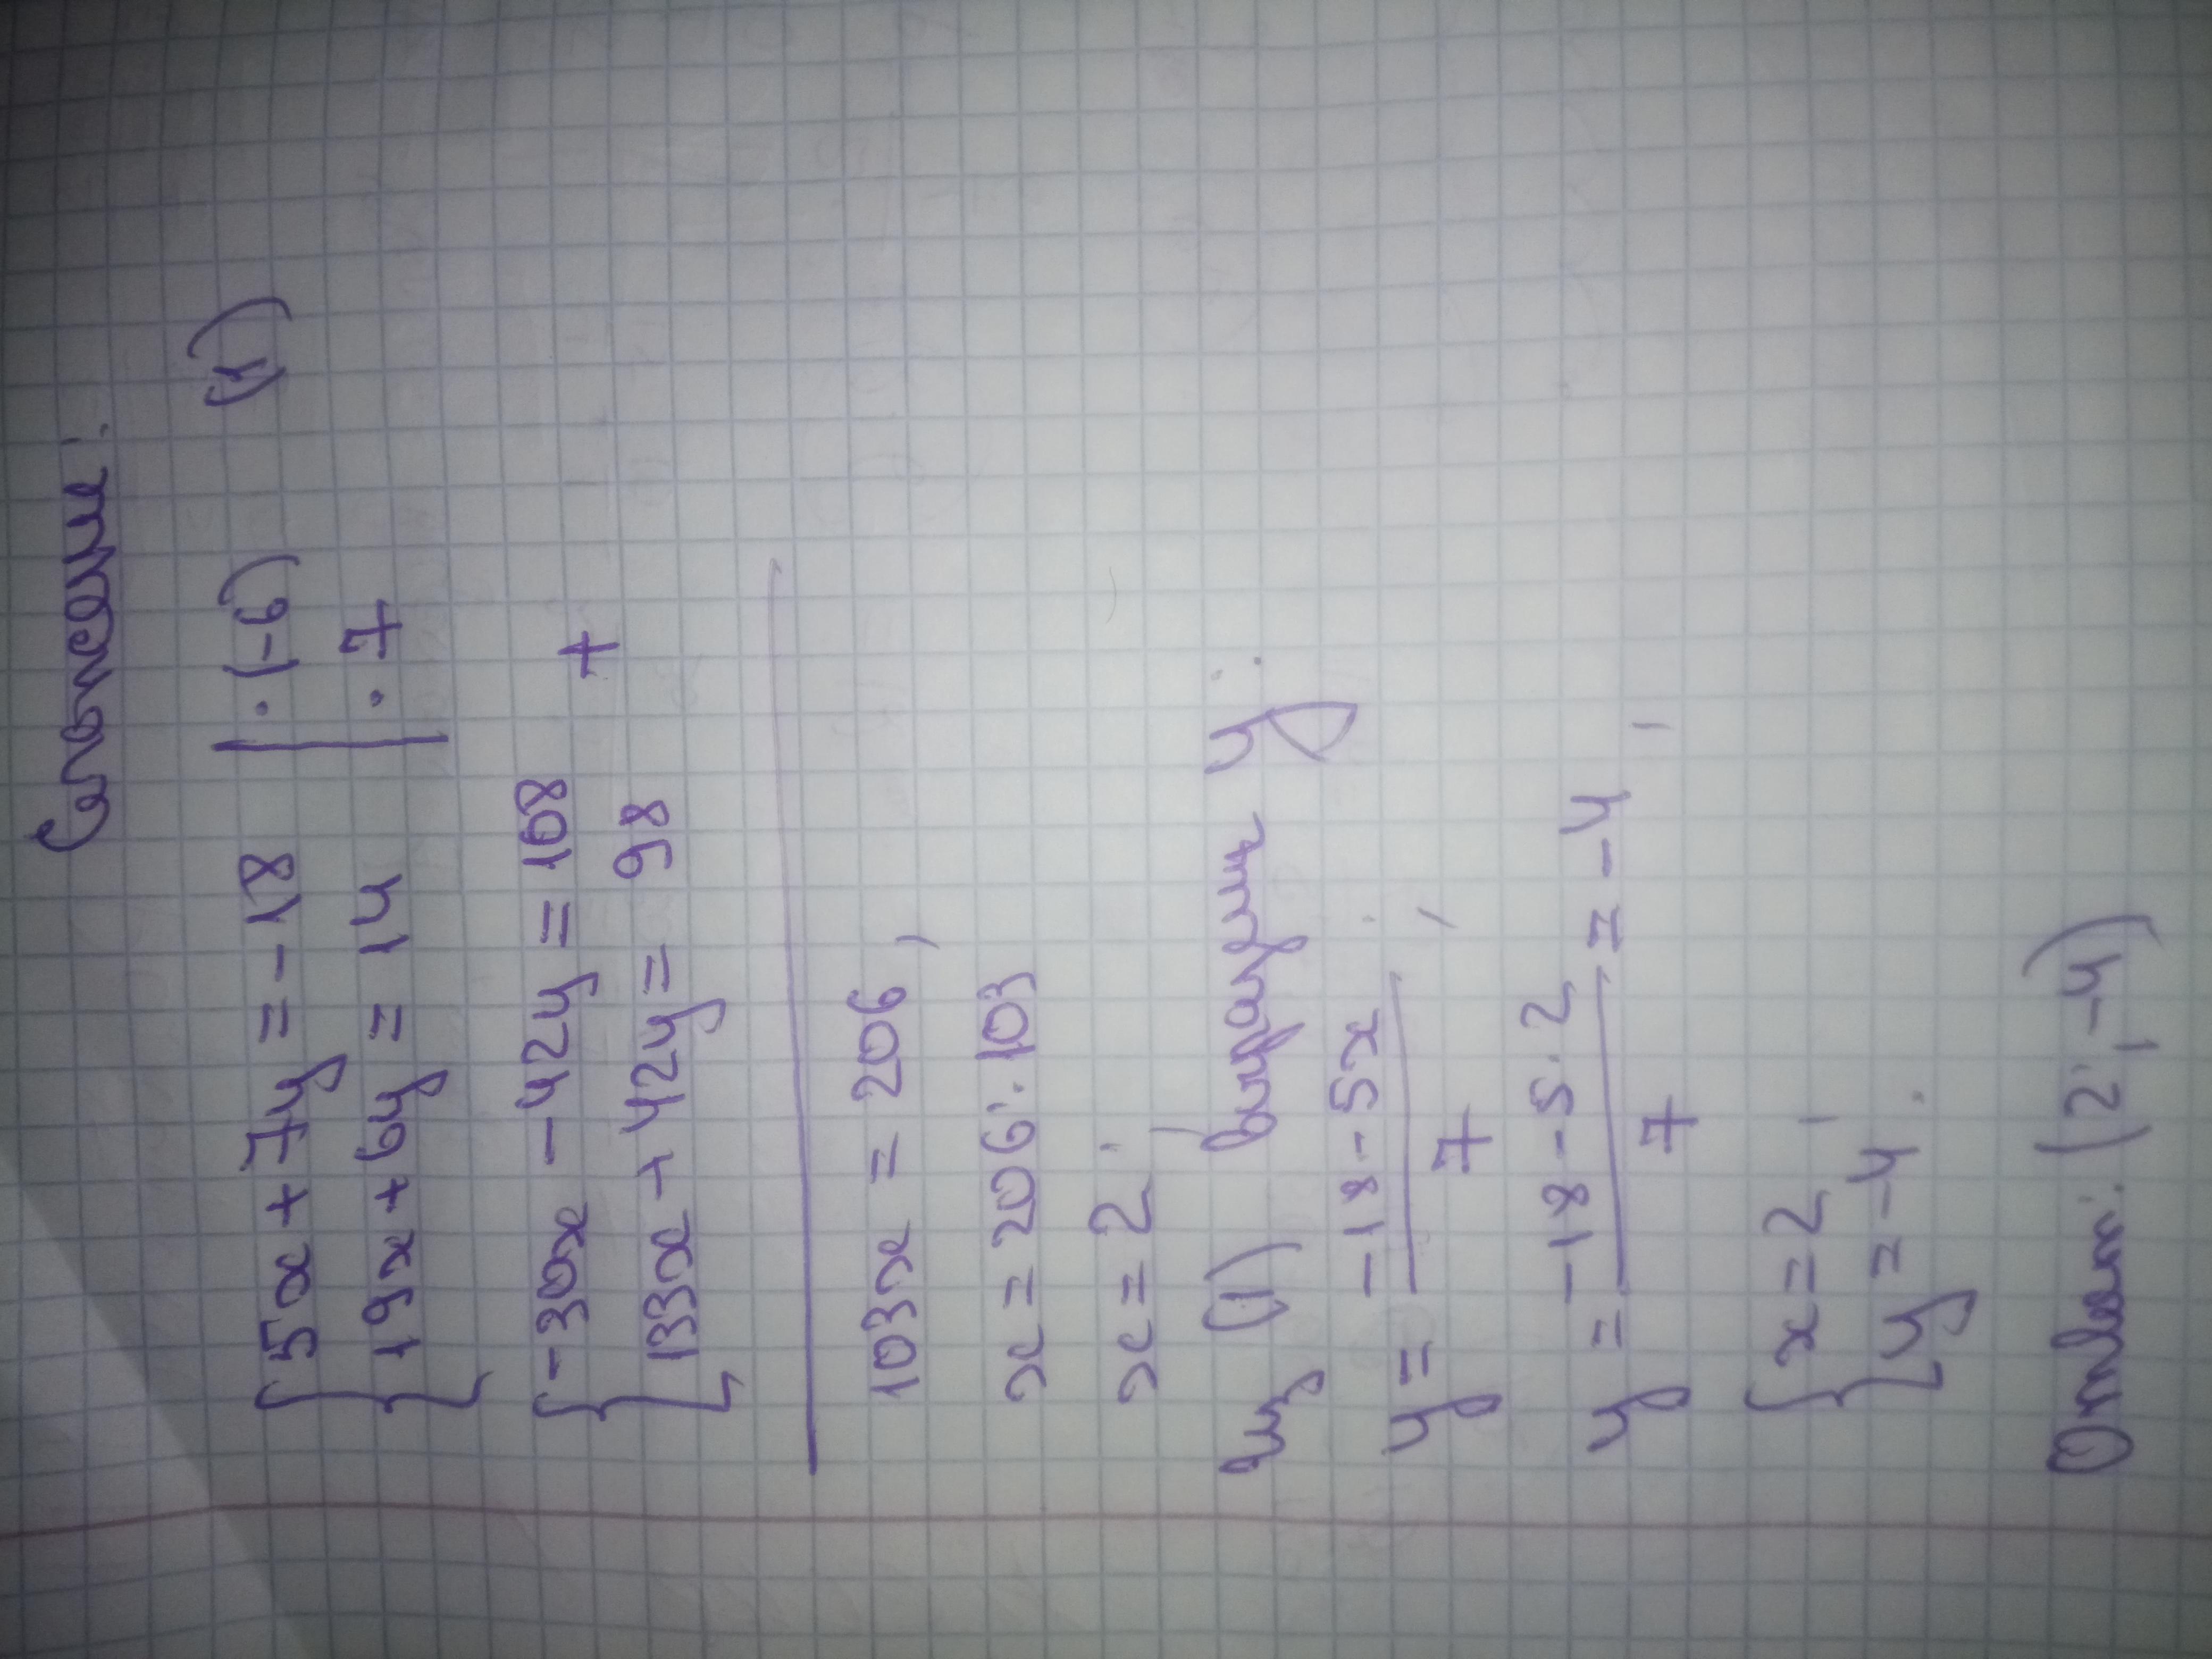 Сложение:
{5x + 7y = -18 | · (-6) (1)
19x + 6y = 14 | · 7
{-30x - 42y = 108
+
133x + 42y = 98
103x = 206,
x = 206 : 103
x = 2.
Из (1) выразим y:
y = (-18 - 5x)/7;
y = (-18 - 5 · 2)/7 = -4,
{x = 2,
y = -4.
Ответ: (2; -4)